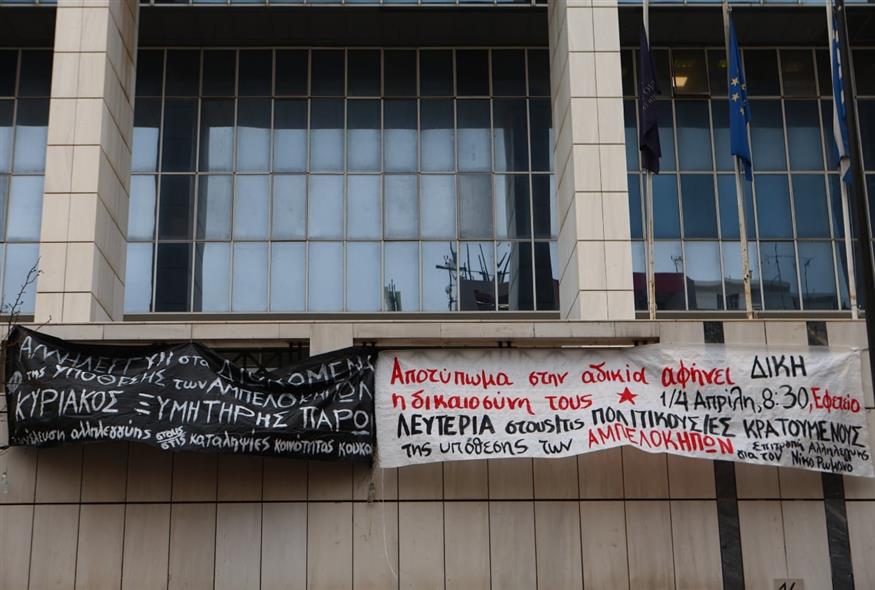 ΑΛΛΗΛΕΓΓΥΗ στα ΔΙΩΚΟΜΕΝΑ
της ΥΠΟΘΕΣΗΣ των ΑΜΠΕΛΟΚΗΠΩΝ
ΚΥΡΙΑΚΟΣ ΞΥΜΗΤΗΡΗΣ ΠΑΡΩ
Συνέλευση αλληλεγγύης στους/στις καταληψίες κοινότητας κουκα
Αποτύπωμα στην αδικία αφήνει
η δικαιοσύνη τους
ΔΙΚΗ
1/4 Απρίλη, 8:30, Εφετείο
ΛΕΥΤΕΡΙΑ στους/τις ΠΟΛΙΤΙΚΟΥΣ/ΕΣ ΚΡΑΤΟΥΜΕΝΟΥΣ
της υπόθεσης των ΑΜΠΕΛΟΚΗΠΩΝ
Επιτροπή Αλληλεγγύης
για τον Νίκο Ρωμανό